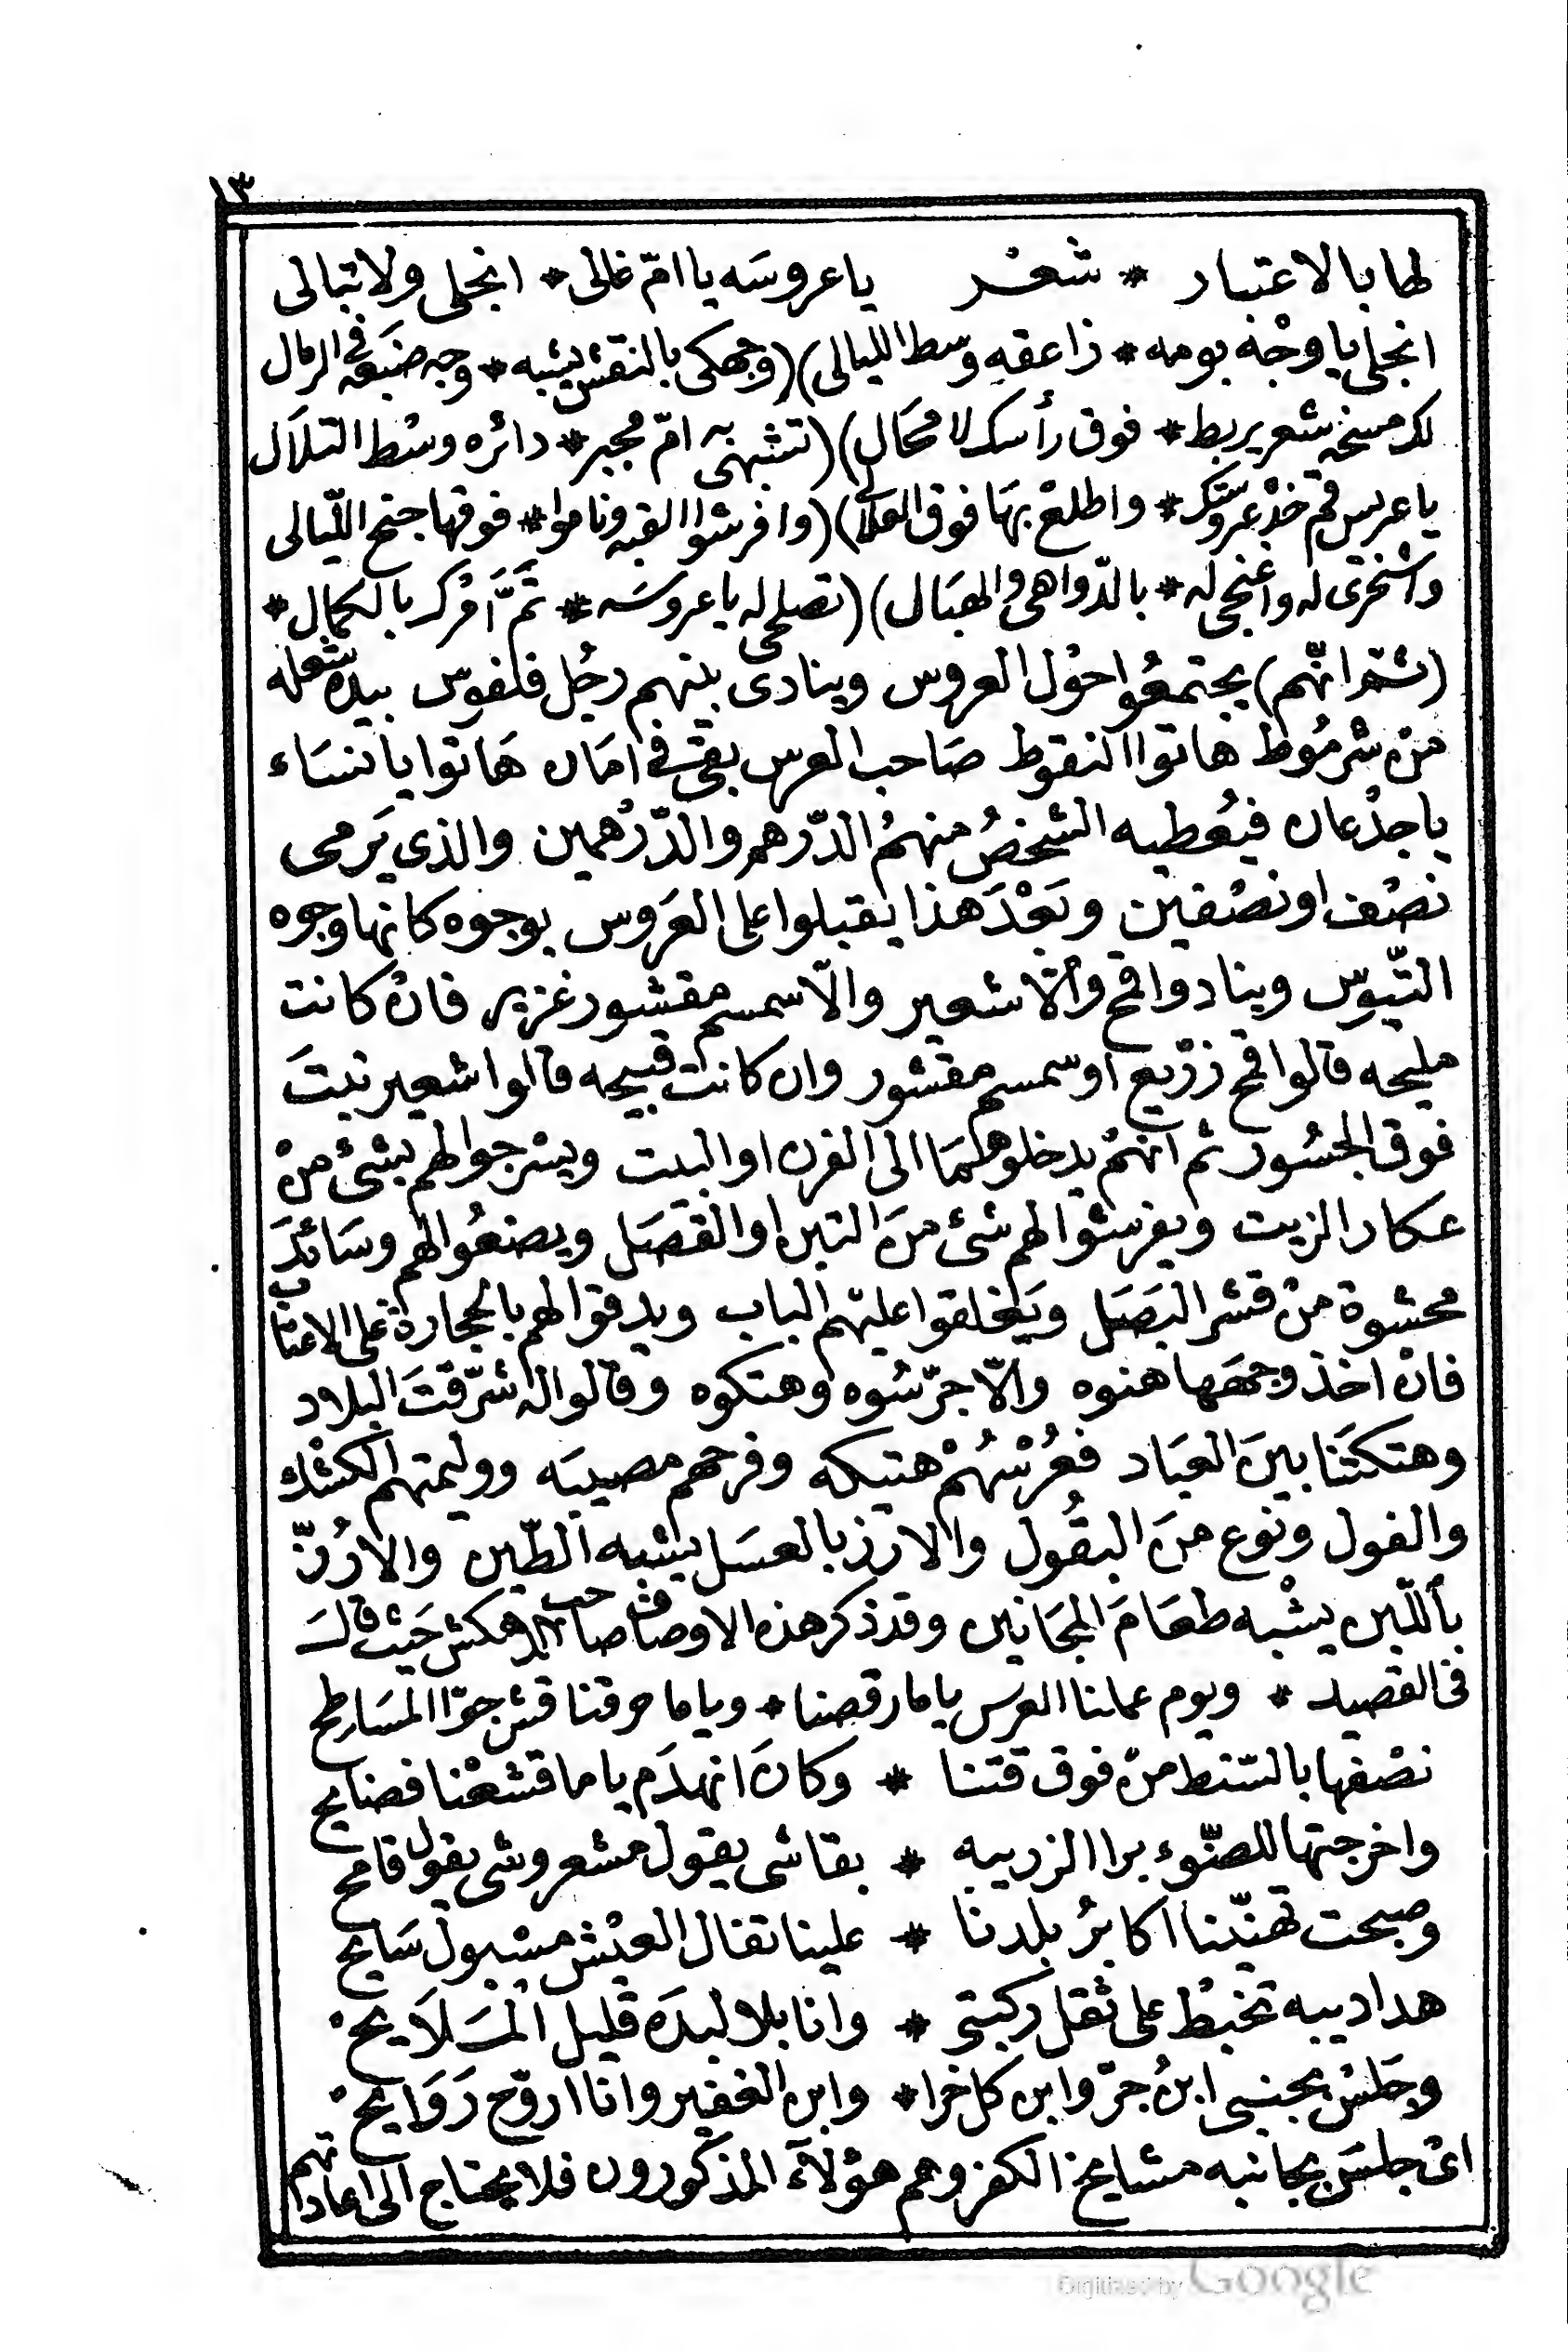 ١٣
لها بالاعتبار * شعْر يا عروسَه يا امّ غالى * انجلى ولا تبالى
انجلى يا وجْه بومه * زاعقه وسط الليالى)(وجهكى بالنقش يشبه * وجه ضبَعه فى الرمال
لك مسخه شعر يربط * فوق رأسك لا محَال)(تشبهى امّ مجبر * دائره وسْط التلَال
يا عريس قم خدْ عروستك * واطلعْ بهَا فوق العلالى)(وافرشوا القبه وناموا * فوقها جنح الليّالى
واشخرى له واغنجى له * بالدّواهى والهبَال)(تصلحى له يا عروسَه * تَمَّ أمْرك بالكمال *
(شمّ انّهم) يجتمعُوا حوْل العروس وينادى بينهم رجُل فلفوس بيده شعله
منْ شرمُوط هاتوا النقوط صَاحب العرس بقى فى امَان هَاتوا يا نسَاء
يا جدْعان فيُعطيه الشخصُ منهمْ الدّرهم والدّرْهمين والذى يَرمى
نصْف او نصْفين وبَعْدَ هذا يقبلوا على العَروس بوجوه كانها وجوه
التّيوس وينادوا قمح والّا شعير والّا سمسم مقشور غزير فانْ كانت
مليحه قالوا قمح زرْيع او سمسم مقشور وان كانت قبيحه قالوا شعير نبتَ
فوق الجسُور ثم انهمْ يدخلوهمَا الى الفرن او البيت ويسْرجوا لهم بشئ منْ
عكار الزيت ويفرشوا لهم شئ منَ التبن او القصَل ويصنعُوا لهم وسَائدَ
محشوة منْ قشر البَصَل ويَغلقوا عليْهم الباب ويدقوا لهم بالحجارة على الاعتاب
فانْ اخذ وجهَها هنوه والّا جرّسُوه وهتكوه وقالوا له شرّقتَ البلاد
وهتكتَنا بينَ العبَاد فعُرْسُهُمْ هتيكه وفرحهم مصيبَه ووليمتهم الكشْك
والفول ونوع منَ البقُول والارز بالعسَل يشبه الطّين والارُزّ
باللّبن يشْبه طعَامَ المجَانين وقد ذكر هذه الاوصاف صاحب هكش حَيث قالَ
فى القصيد * ويوم عملنا العرس ياما رقصنا * وياما حرقنا قش جوّا المسَارطح
نصْفها بالسّنط منْ فوق قتنا * وكانَ انهدَم ياما قشعْنا فضايح
واخرجتها للضّوء برا الزريبه * بقا شى يقول مشعر وشى يقول قامح
وصبحت تهنّينا اكابرُ بلدنا * علينا تقال العيْش مسْبول سَايح
هدا ديبه تخبطْ على ثقل ركبتى * وانا بلا لبدَه قليل المسَلَايحْ
وجَلسْ بجنبى ابنُ جرّ وابن كل خرا * وابن الغفير وانا اروّح رَوَايحْ
اىْ جلسَ بجانبه مشايخ الكفر وهم هؤلآء المذكورون فلا يحتاج الى اعادتهم
Digitized by Google